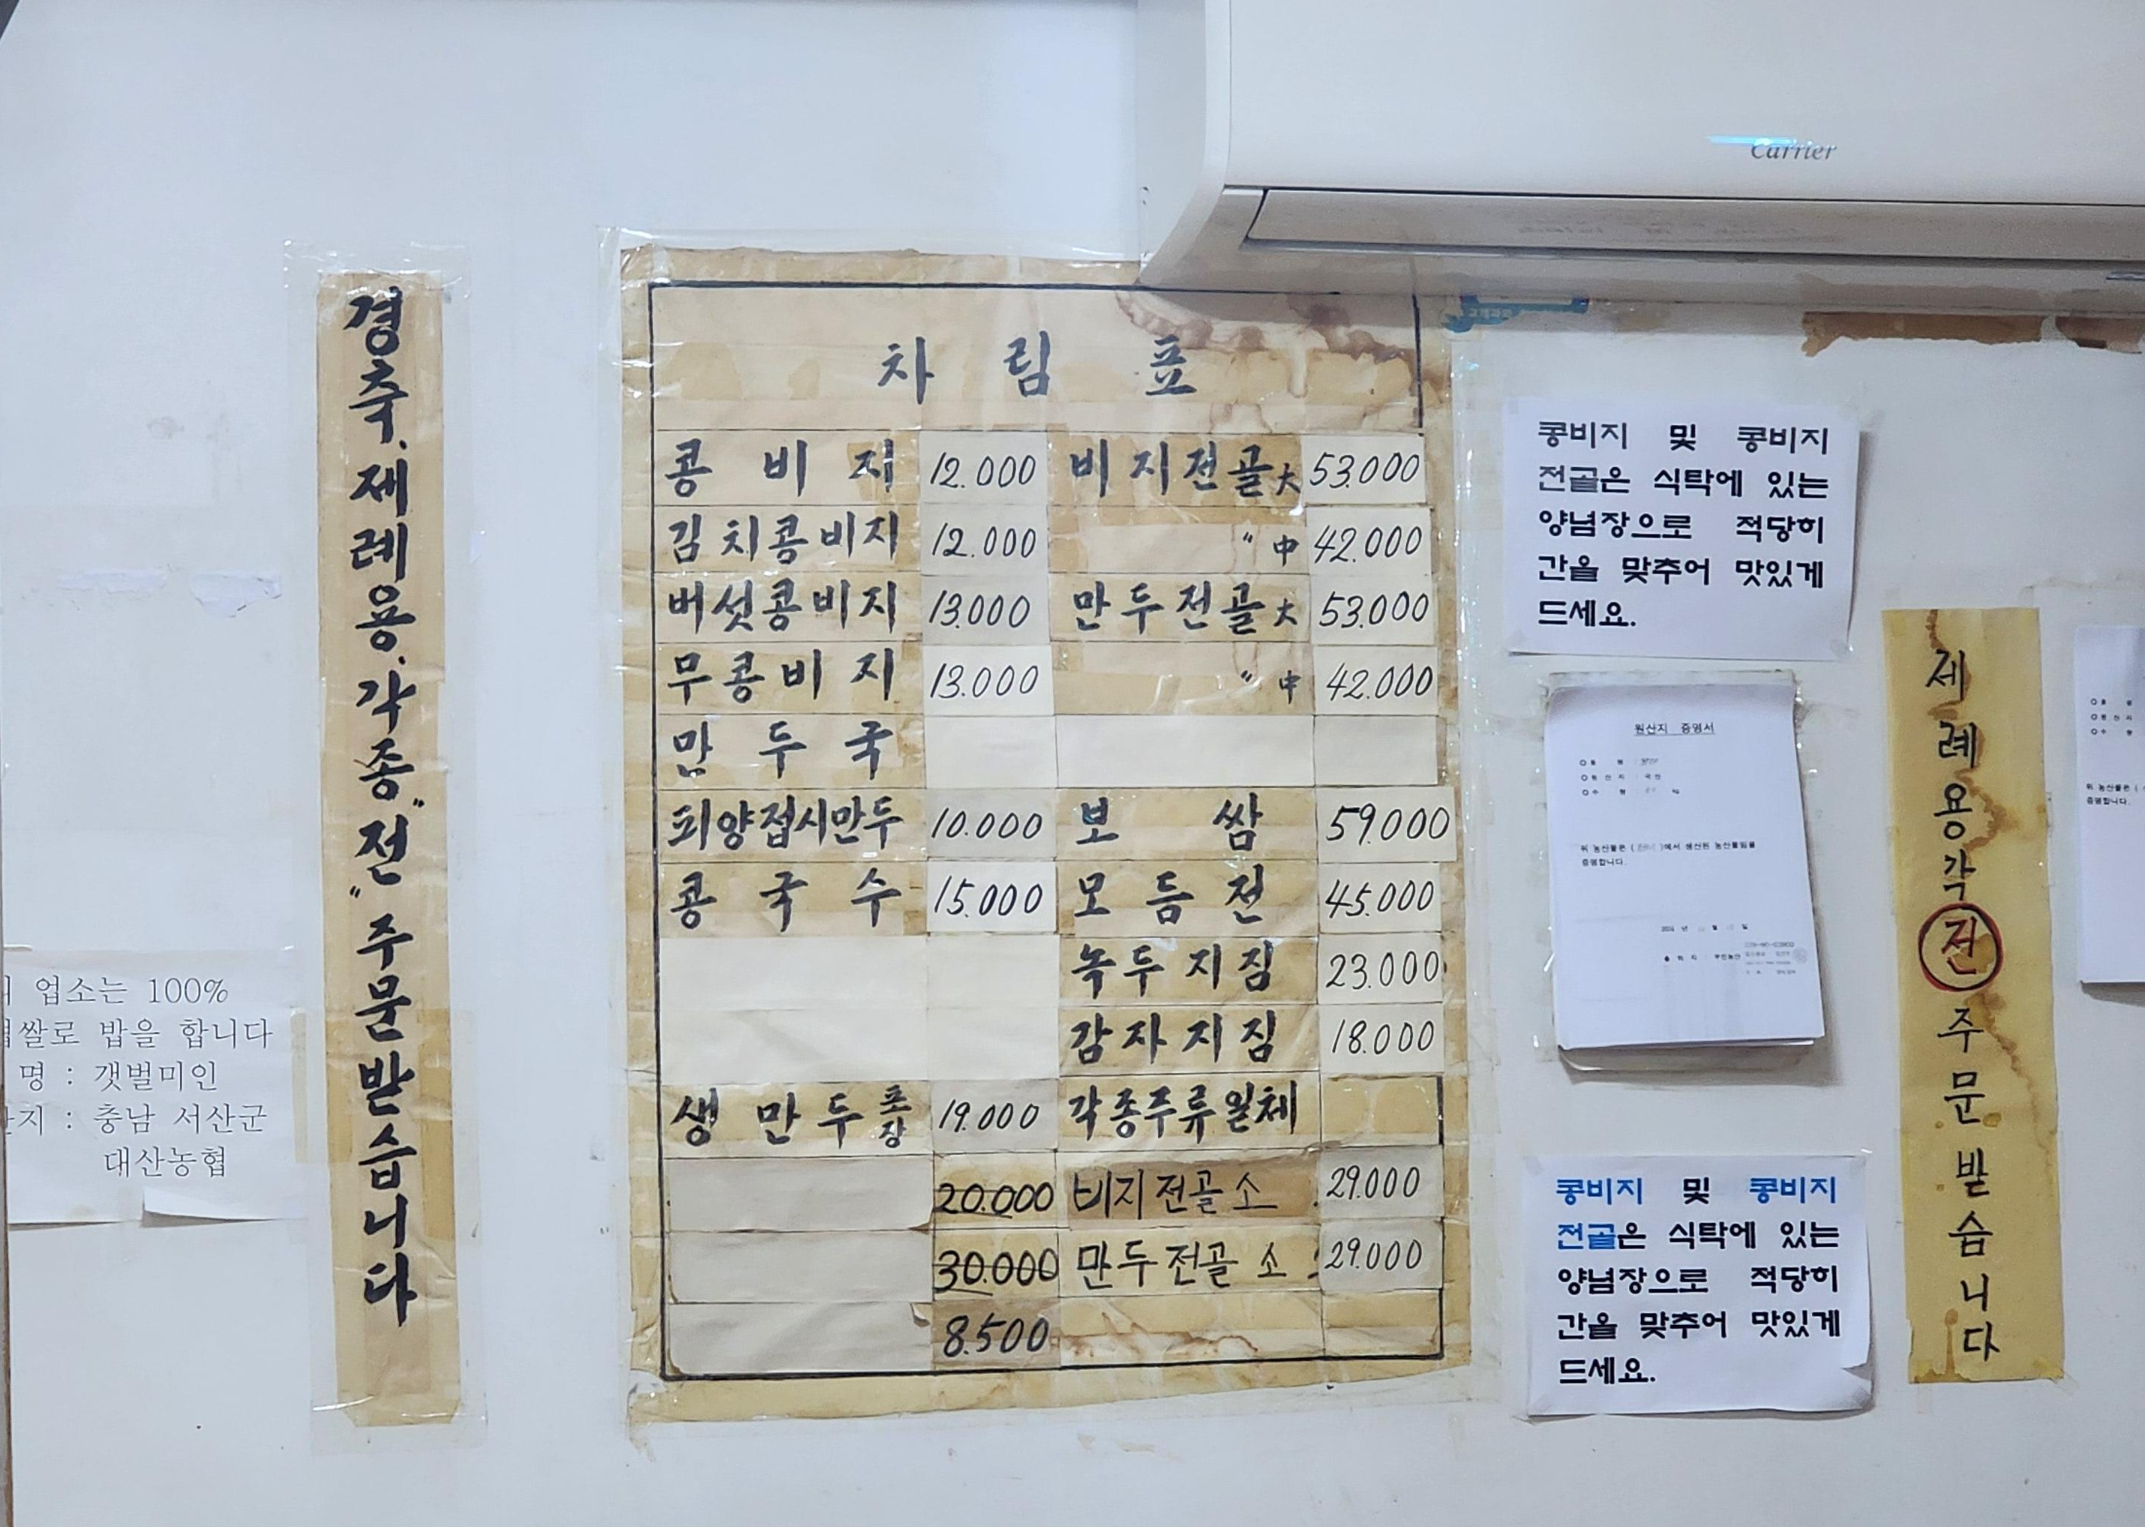 Carrier
경축. 제례용. 각종 "전" 주문 받습니다
차림표
콩비지 12.000 비지전골大 53.000
김치콩비지 12.000 〃中 42.000
버섯콩비지 13.000 만두전골大 53.000
무콩비지 13.000 〃中 42.000
만두국
피양접시만두 10.000 보쌈 59.000
콩국수 15.000 모듬전 45.000
녹두지짐 23.000
감자지짐 18.000
생만두포장 19.000 각종주류일체
20.000 비지전골 소 29.000
30.000 만두전골 소 29.000
8.500
업소는 100%
쌀로 밥을 합니다
명 : 갯벌미인
지 : 충남 서산군
대산농협
콩비지 및 콩비지
전골은 식탁에 있는
양념장으로 적당히
간을 맞추어 맛있게
드세요.
원산지 증명서
위 농산물은 ( )에서 생산된 농산물임을
증명합니다.
콩비지 및 콩비지
전골은 식탁에 있는
양념장으로 적당히
간을 맞추어 맛있게
드세요.
제례용각전주문받습니다
위 농산물은 (
증명합니다.